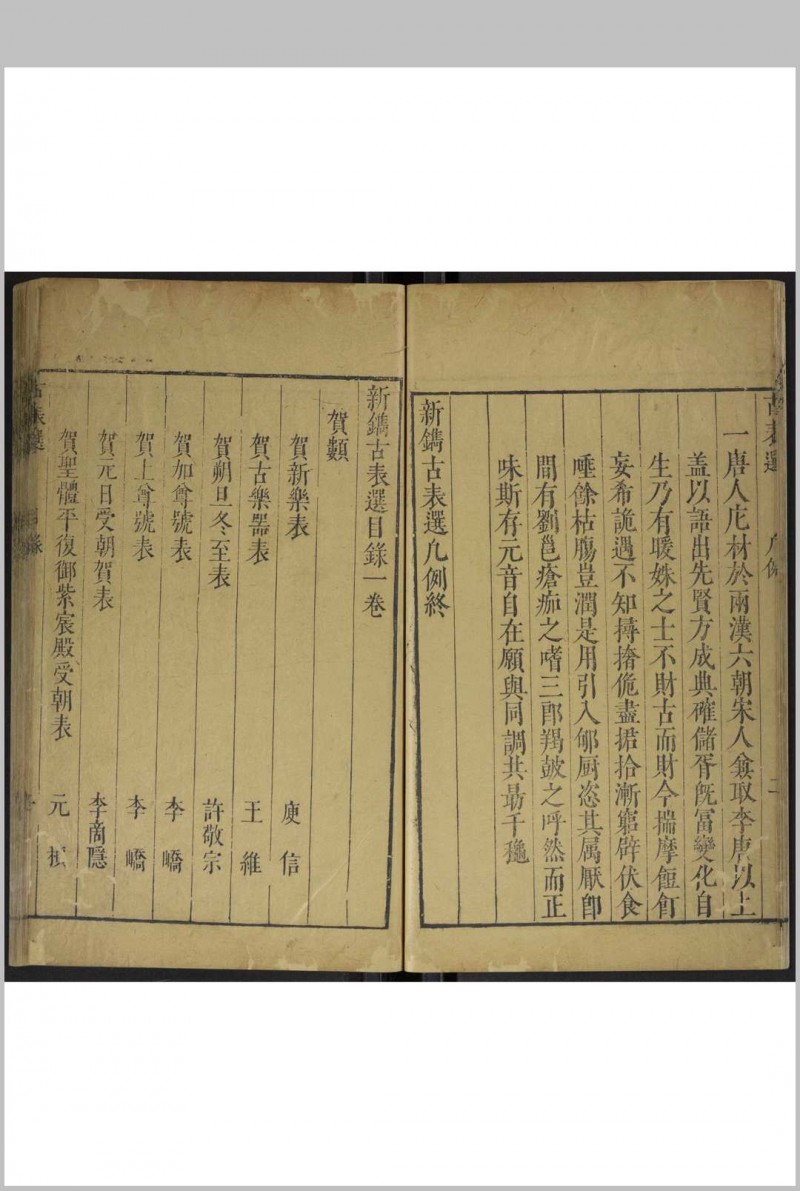 古表選 凡例 二
一唐人庀材於兩漢六朝宋人兼取李唐以上
蓋以語出先賢方成典確儲胥旣冨變化自
生乃有暖姝之士不財古而財今揣摩飣
妄希詭遇不知撏撦侂盡掑拾漸窮辟伏食
唾餘枯膓豈潤是用引入郇厨恣其属厭卽
間有劉邕瘡痂之嗜三郎羯皷之呼然而正
味斯存元音自在願與同調共勗千穐
新鐫古表選凡例終
新鐫古表選目錄一卷
賀類
賀新樂表 庾信
賀古樂器表 王維
賀朔旦冬至表 許敬宗
賀加尊號表 李嶠
賀上尊號表 李嶠
賀元日受朝賀表 李商隱
賀聖體平復御紫宸殿受朝表 元稹
古表選 目錄 一